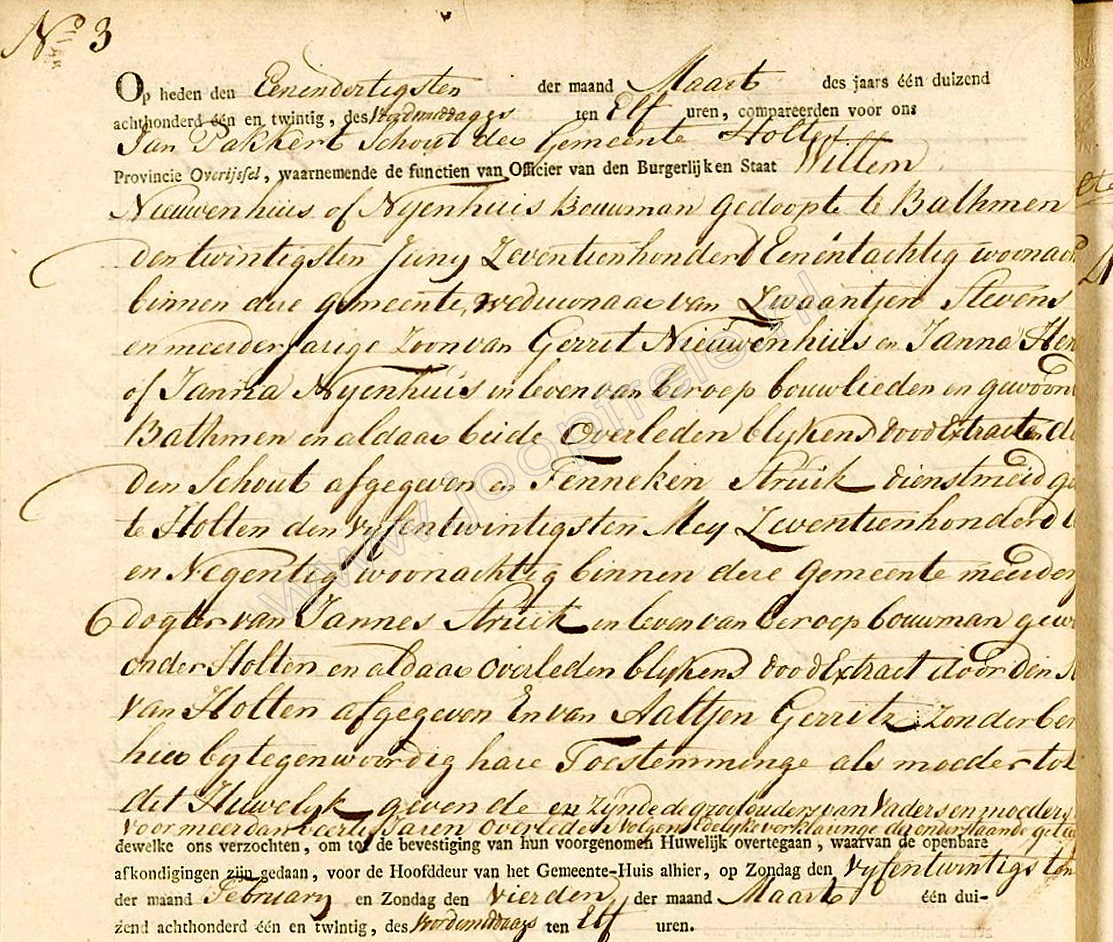 No 3
Op heden den Eenendertigsten der maand Maart des jaars één duizend
achthonderd één en twintig, des Voordemiddages ten Elf uren, compareerden voor ons
Jan Pakkert Schout der Gemeente Holten
Provincie Overijssel, waarnemende de functien van Officier van den Burgerlijken Staat Willem
Nieuwenhuis of Nyenhuis Bouman gedoopt te Bathmen
den twintigsten Juny Zeventienhonderd Eenéntachtig woonach
binnen dese gemeente, weduwnaar van Zwaantjen Stevens
en meerderjarige Zoon van Gerrit Nieuwenhuis en Janna Hen
of Janna Nyenhuis in leven van beroep bouwlieden en gewoond
Bathmen en aldaar beide Overleden blykens dood Extracten do
den Schout afgegeven en Fenneken Struik dienstmeid ge
te Holten den vyfentwintigsten Mey Zeventienhonderd
en Negentig woonachtig binnen dese gemeente meerder
dogter van Jannes Struik in leven van beroep bouwman gew
onder Holten en aldaar overleden blykens dood Extract door den S
van Holten afgegeven En van Aaltjen Gerritz Zonder ber
hier bytegenwoordig hare Toestemminge als moeder tot
dit Huwelyk gevende en zynde de grootouders van Vaders en moeders
voor meer dan veertig Jaren overleden volgens Edelyke verklaringe der onderstaande getui
dewelke ons verzochten, om tot de bevestiging van hun voorgenomen Huwelijk overtegaan, waarvan de openbare
afkondigingen zijn gedaan, voor de Hoofddeur van het Gemeente-Huis alhier, op Zondag den Vyfentwintigsten
der maand February en Zondag den Vierden der maand Maart één dui-
zend achthonderd één en twintig, des Voordemiddags ten Elf uren.
www.jooptreis.nl